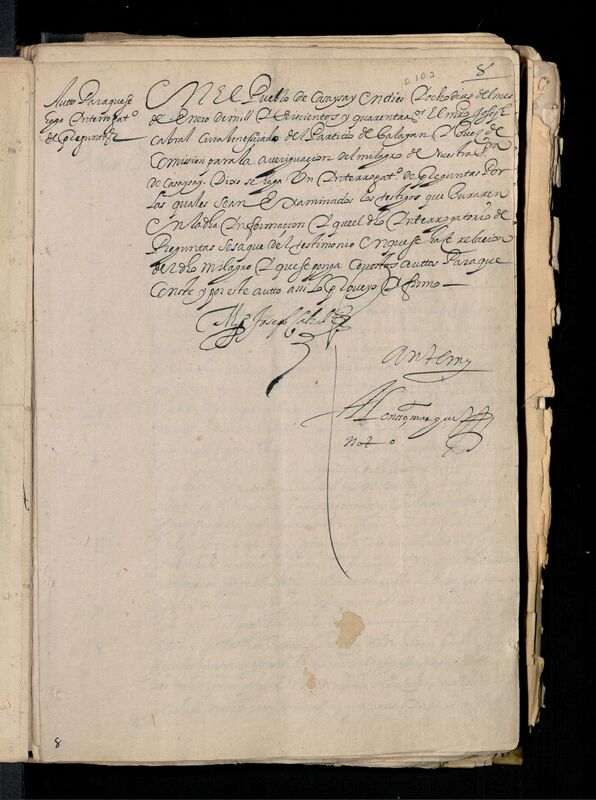 8
Autto Paraque se
haga Interrogat.º
de Preguntas
EN EL Pueblo de Casaysay En diez Y ocho dias del mes
de Enero de mill Y seiscientos y quarenta
Cabral Cura beneficiado del Partido de Balayan Y Juez de
Comission para la averiguacion del milagro de Nuestra
de Casaysay. Dixo se haga Un Interrogat.º de Preguntas Por
las quales sean Examinados los testigos que Juraren
En la dha Informacion Y que el dho Interrogatorio de
Preguntas se saque del testimonio En que se hase relacion
del dho milagro Y que se ponga Con estos auttos Para que
Conste y por este autto assi lo Proveyo Y firmo —
Mro Joseph Cabral
Ante my
Alonso marquez
Not.º
8